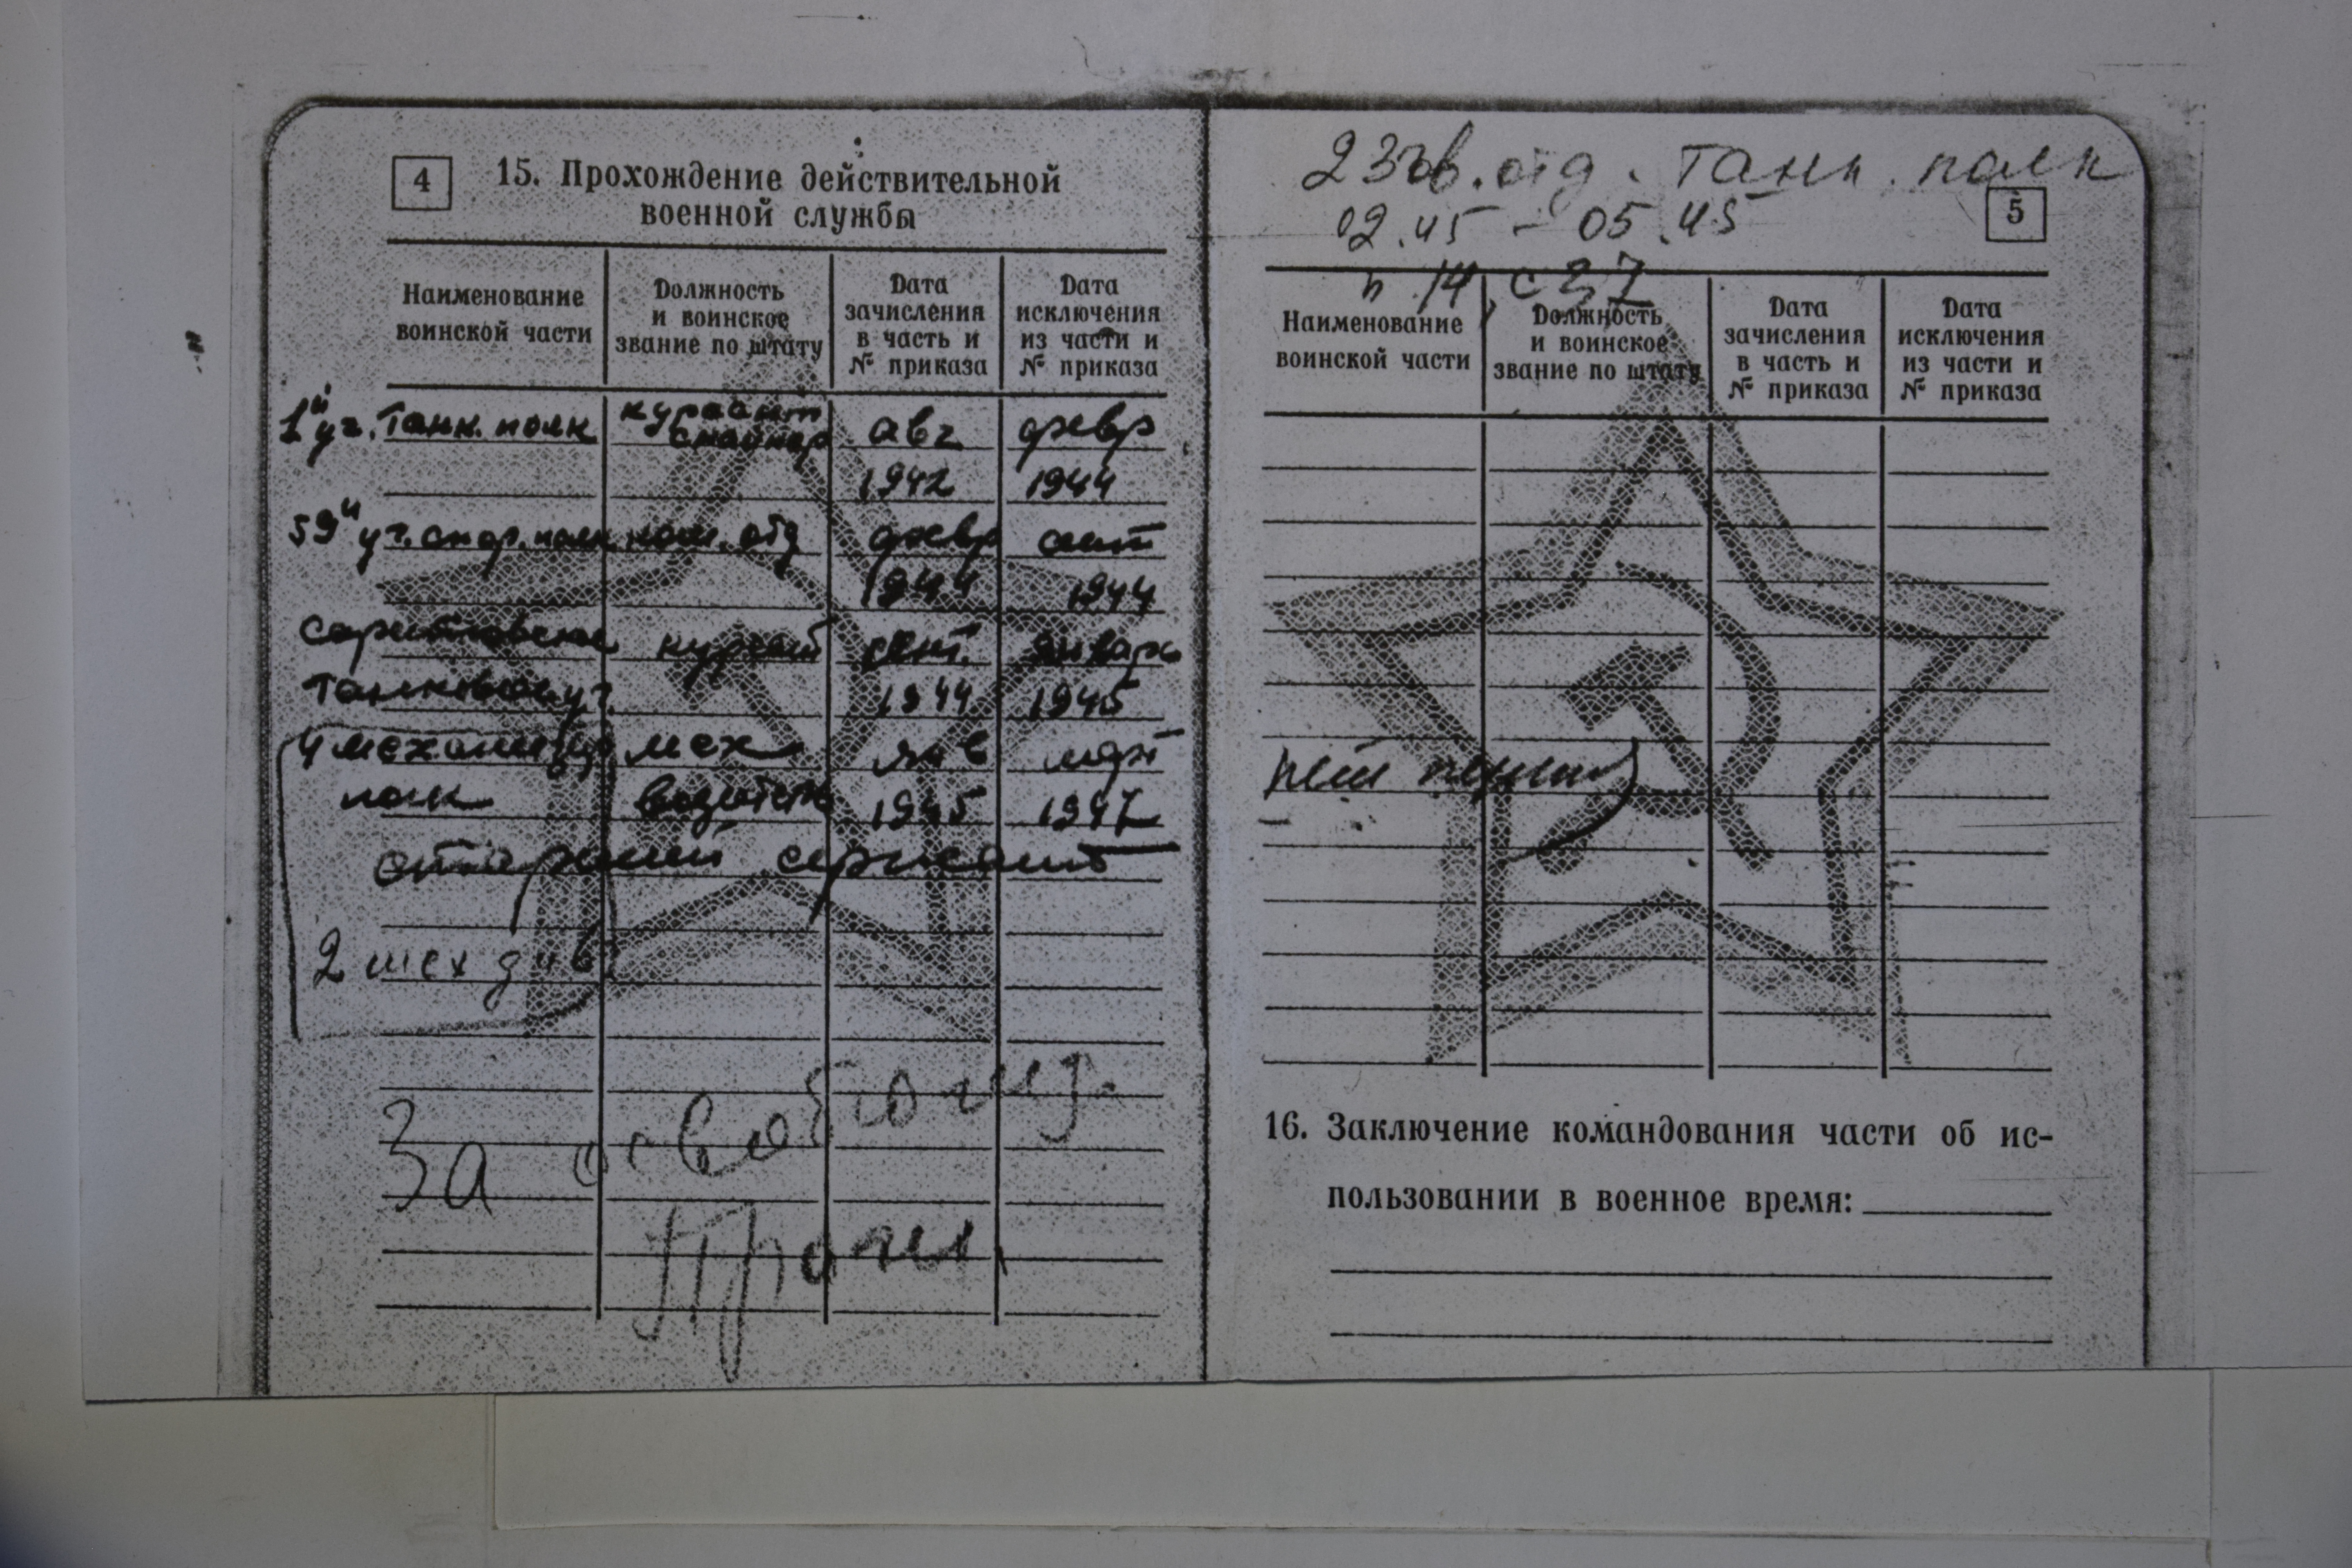 4
15. Прохождение действительной
военной службы
Наименование
воинской части
Должность
и воинское
звание по штату
Дата
зачисления
в часть и
№ приказа
Дата
исключения
из части и
№ приказа
1й уч. танк. полк
курсант
снайпер
авг
1942
февр
1944
59й уч. снар. полк
ком. отд
февр
1944
сент
1944
танковое уч.
курсант
сент.
1944
январь
1945
4 механизир
полк
мех
водитель
янв
1945
март
1947
старший сержант
2 мех див
За освобожд.
Праги
23 гв. отд. танк. полк
02.45 - 05.45
п 14, с 37
5
Наименование
воинской части
Должность
и воинское
звание по штату
Дата
зачисления
в часть и
№ приказа
Дата
исключения
из части и
№ приказа
нет
16. Заключение командования части об ис-
пользовании в военное время: